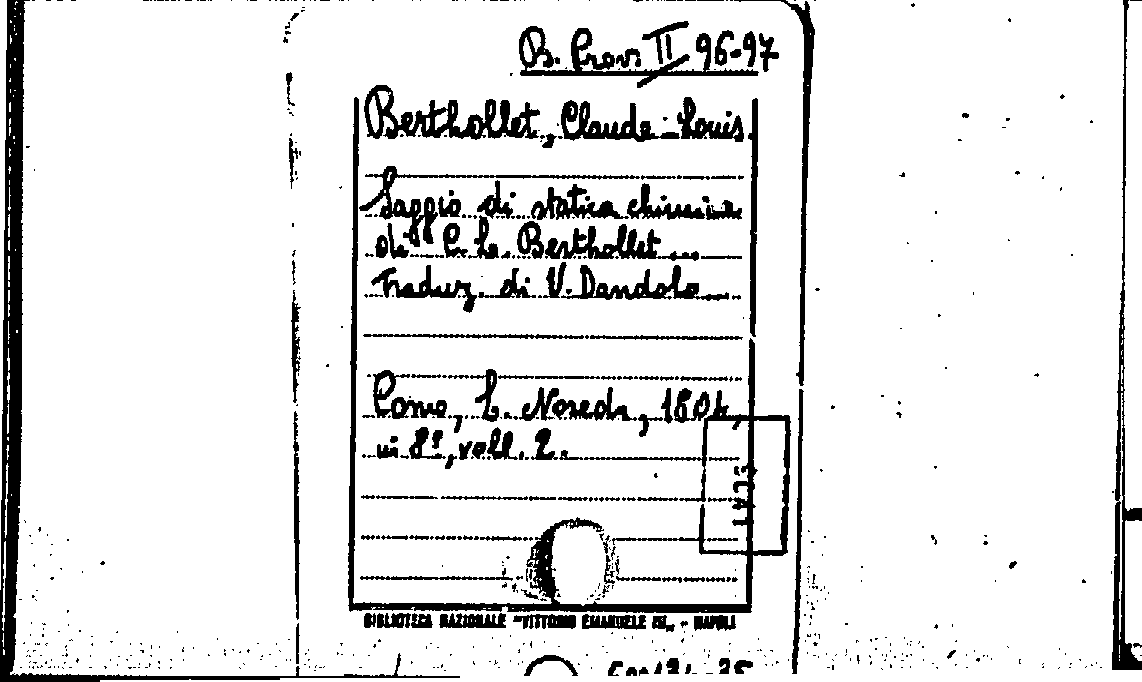 B. Prov. II 96-97
Berthollet, Claude-Louis.
Saggio di statica chimica
di C. L. Berthollet ...
Traduz. di V. Dandolo ...
Como, L. Noseda, 1804,
in 8º, voll. 2.
BIBLIOTECA NAZIONALE "VITTORIO EMANUELE III" - NAPOLI